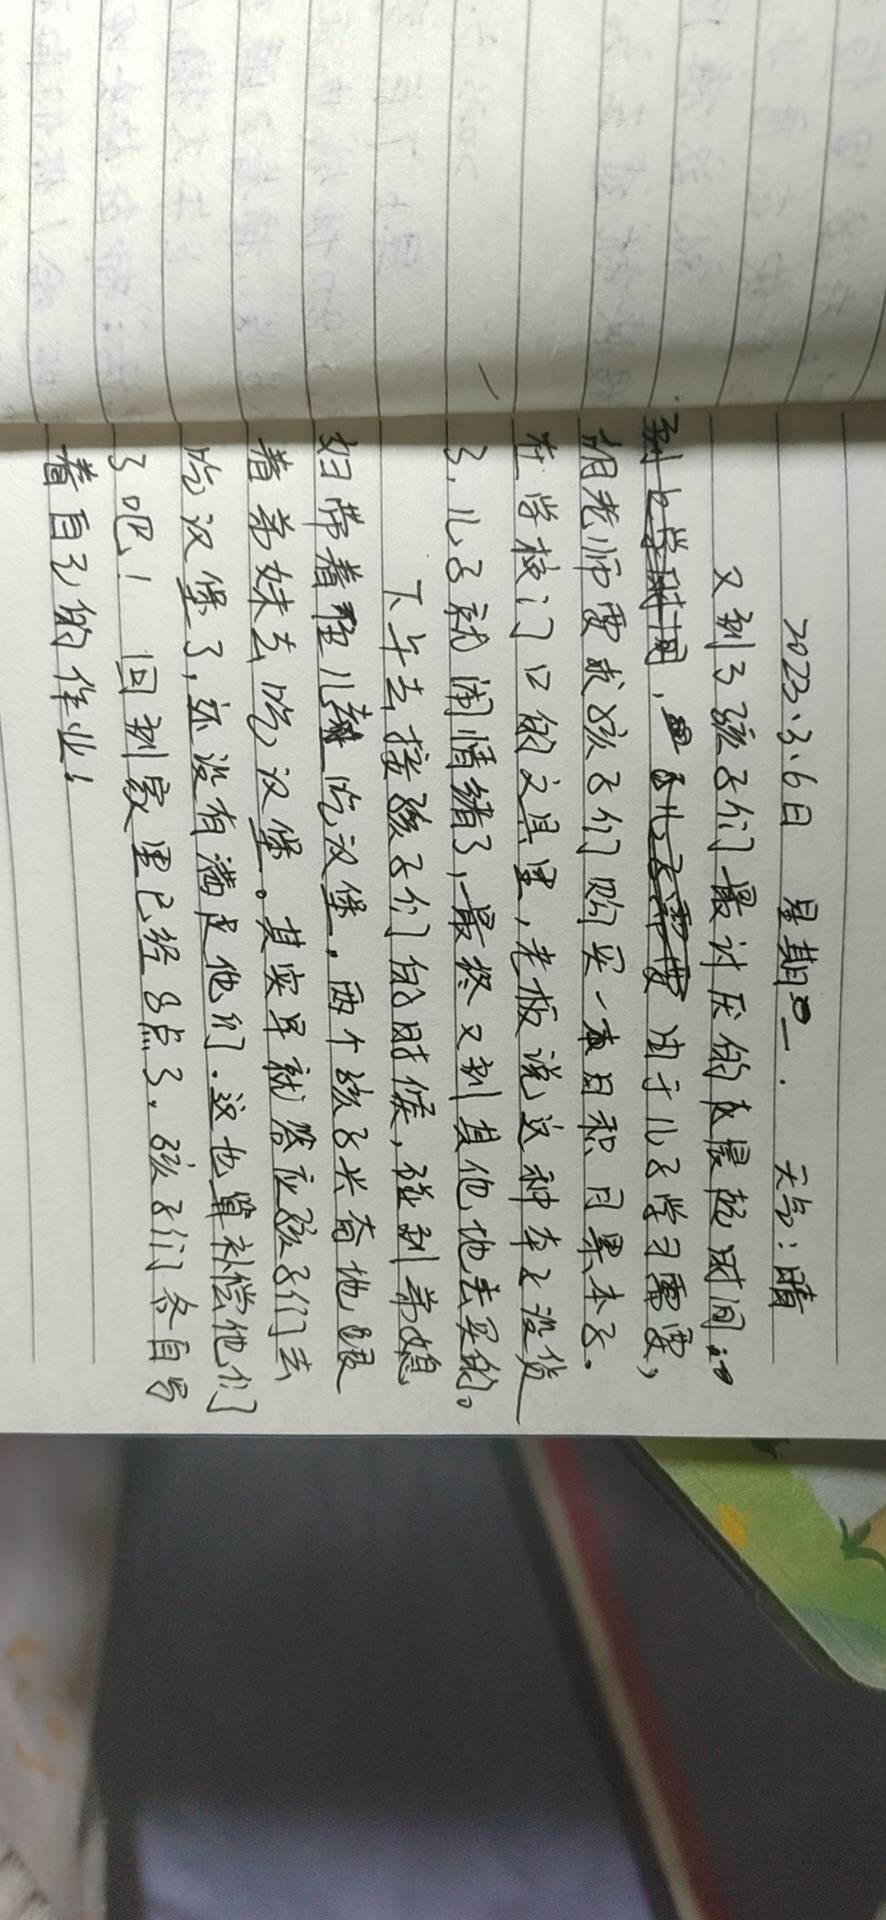 2023.3.6日 星期一. 天气:晴
又到了孩子们最讨厌的晨起时间.
由于儿子学习需要,
胡老师要求孩子们购买一本日积月累本子.
在学校门口的文具里,老板说这种本子没货
了,儿子就闹情绪了,最终又到其他地去买的。
下午去接孩子们的时候,碰到弟媳
妇带着侄儿吃汉堡,两个孩子兴奋地跟
着弟妹去吃汉堡。其实早就答应孩子们去
吃汉堡了,还没有满足他们.这也算补偿他们
了吧!回到家里已经8点了.孩子们各自写
着自己的作业!